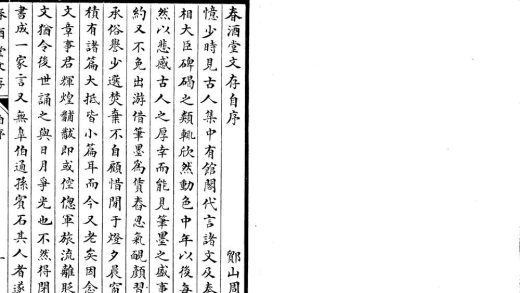 春酒堂文存自序
鄮山周
憶少時見古人集中有館閣代言諸文及奉
相大臣碑碣之類輒欣然動色中年以後每
然以悲感古人之厚幸而能見筆墨之盛事
約又不免出游借筆墨為傭舂恩氣靦顏習
承俗譽少選焚棄不自顧惜閒于燈夕晨窗
積有諸篇大抵皆小篇耳而今又老矣因念
文章事君輝煌黼黻即或倥傯軍旅流離貶
文猶令後世誦之與日月爭光也不然得閉
書成一家言又無臯伯通孫賓石其人者遂
春酒堂文存
自序
一